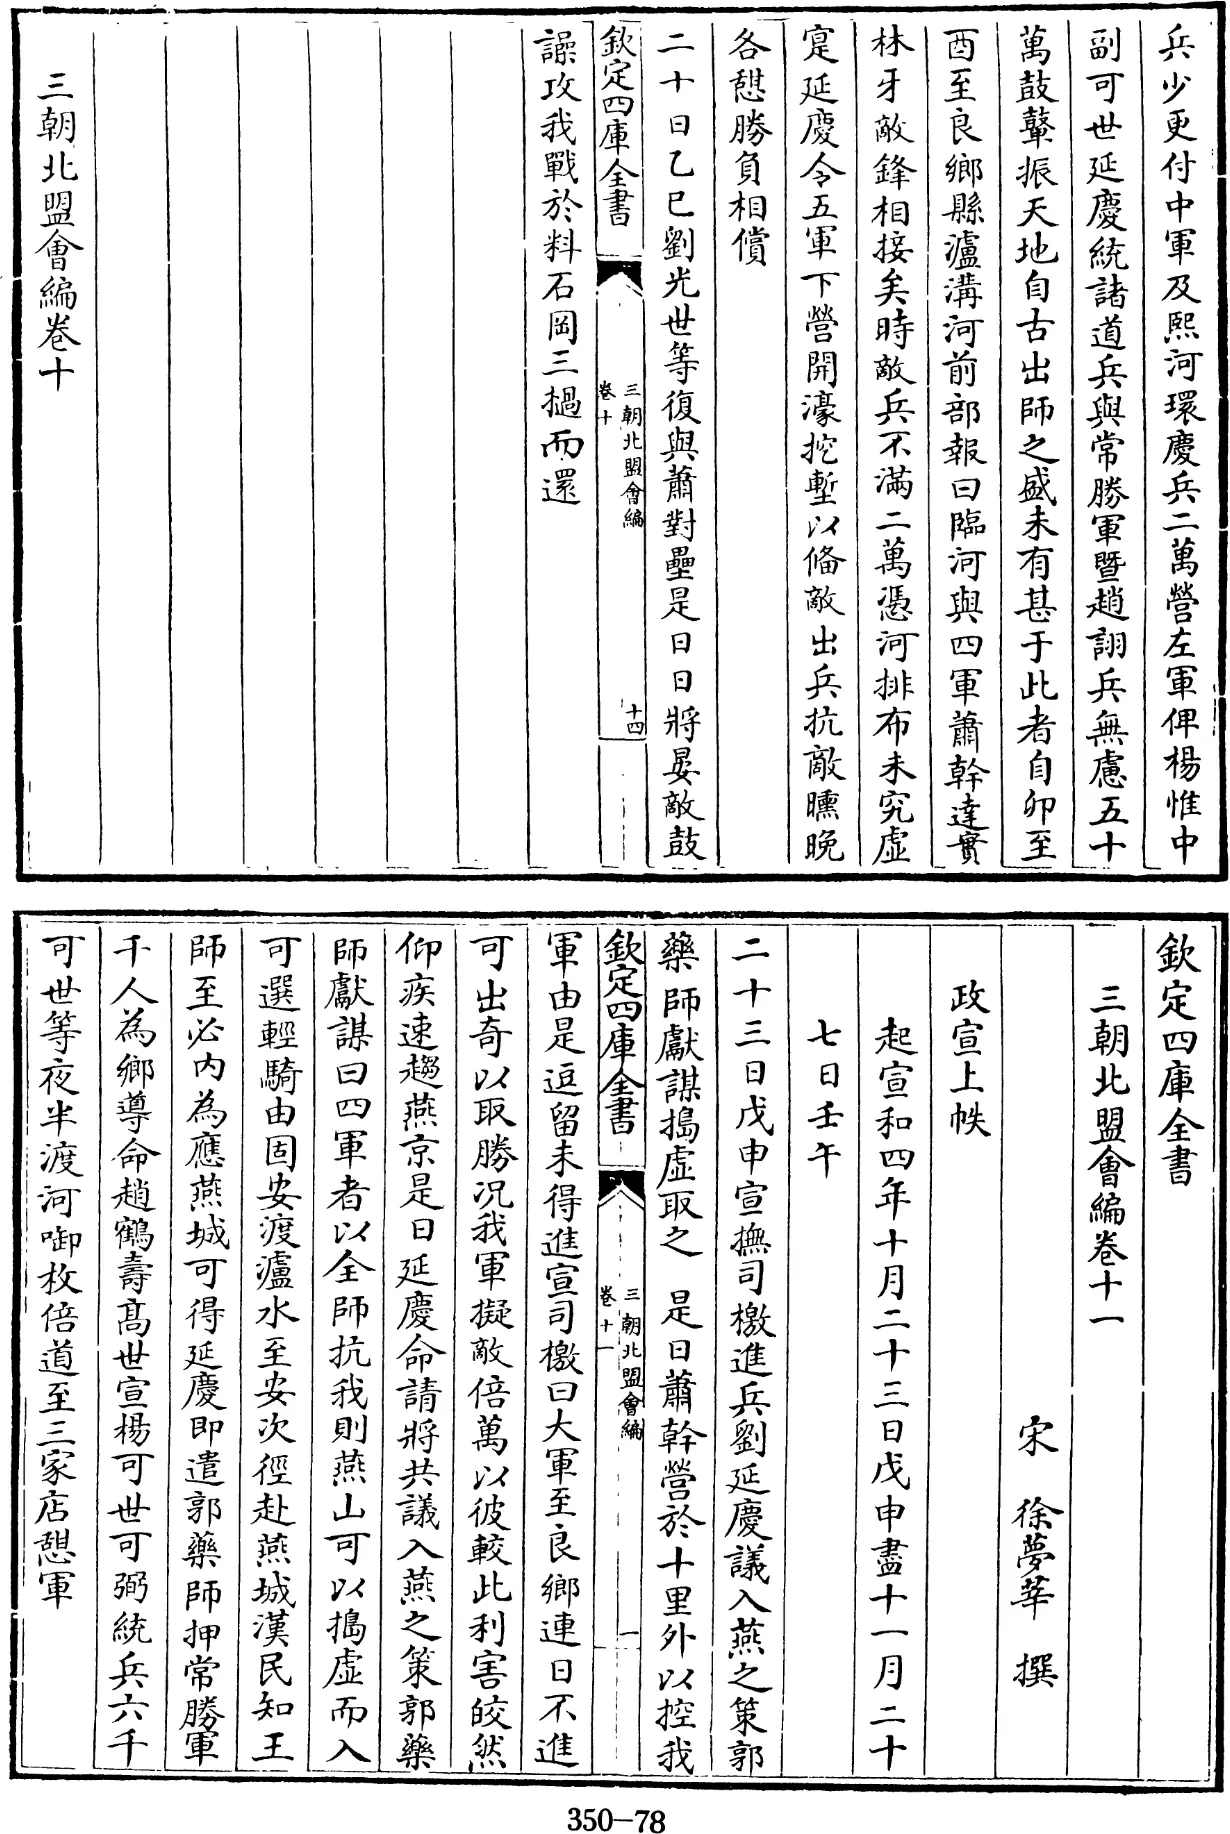 兵少更付中軍及熙河環慶兵二萬營左軍俾楊惟中
副可世延慶統諸道兵與常勝軍暨趙詡兵無慮五十
萬鼓鼙振天地自古出師之盛未有甚于此者自卯至
酉至良鄉縣瀘溝河前部報曰臨河與四軍蕭幹達實
林牙敵鋒相接矣時敵兵不滿二萬憑河排布未究虛
寔延慶令五軍下營開濠挖塹以備敵出兵抗敵曛晚
各憇勝負相償
二十日乙巳劉光世等復與蕭對壘是日日將晏敵鼓
欽定四庫全書
三朝北盟會編
卷十
十四
譟攻我戰於料石岡三撾而還
三朝北盟會編卷十
欽定四庫全書
三朝北盟會編卷十一
宋 徐夢莘 撰
政宣上帙
起宣和四年十月二十三日戊申盡十一月二十
七日壬午
二十三日戊申宣撫司檄進兵劉延慶議入燕之策郭
藥師獻謀搗虛取之 是日蕭幹營於十里外以控我
欽定四庫全書
三朝北盟會編
卷十一
一
軍由是逗留未得進宣司檄曰大軍至良鄉連日不進
可出奇以取勝況我軍擬敵倍萬以彼較此利害皎然
仰疾速趨燕京是日延慶命請將共議入燕之策郭藥
師獻謀曰四軍者以全師抗我則燕山可以搗虛而入
可選輕騎由固安渡瀘水至安次徑赴燕城漢民知王
師至必內為應燕城可得延慶即遣郭藥師押常勝軍
千人為鄉導命趙鶴壽高世宣楊可世可弼統兵六千
可世等夜半渡河啣枚倍道至三家店憇軍
350-78